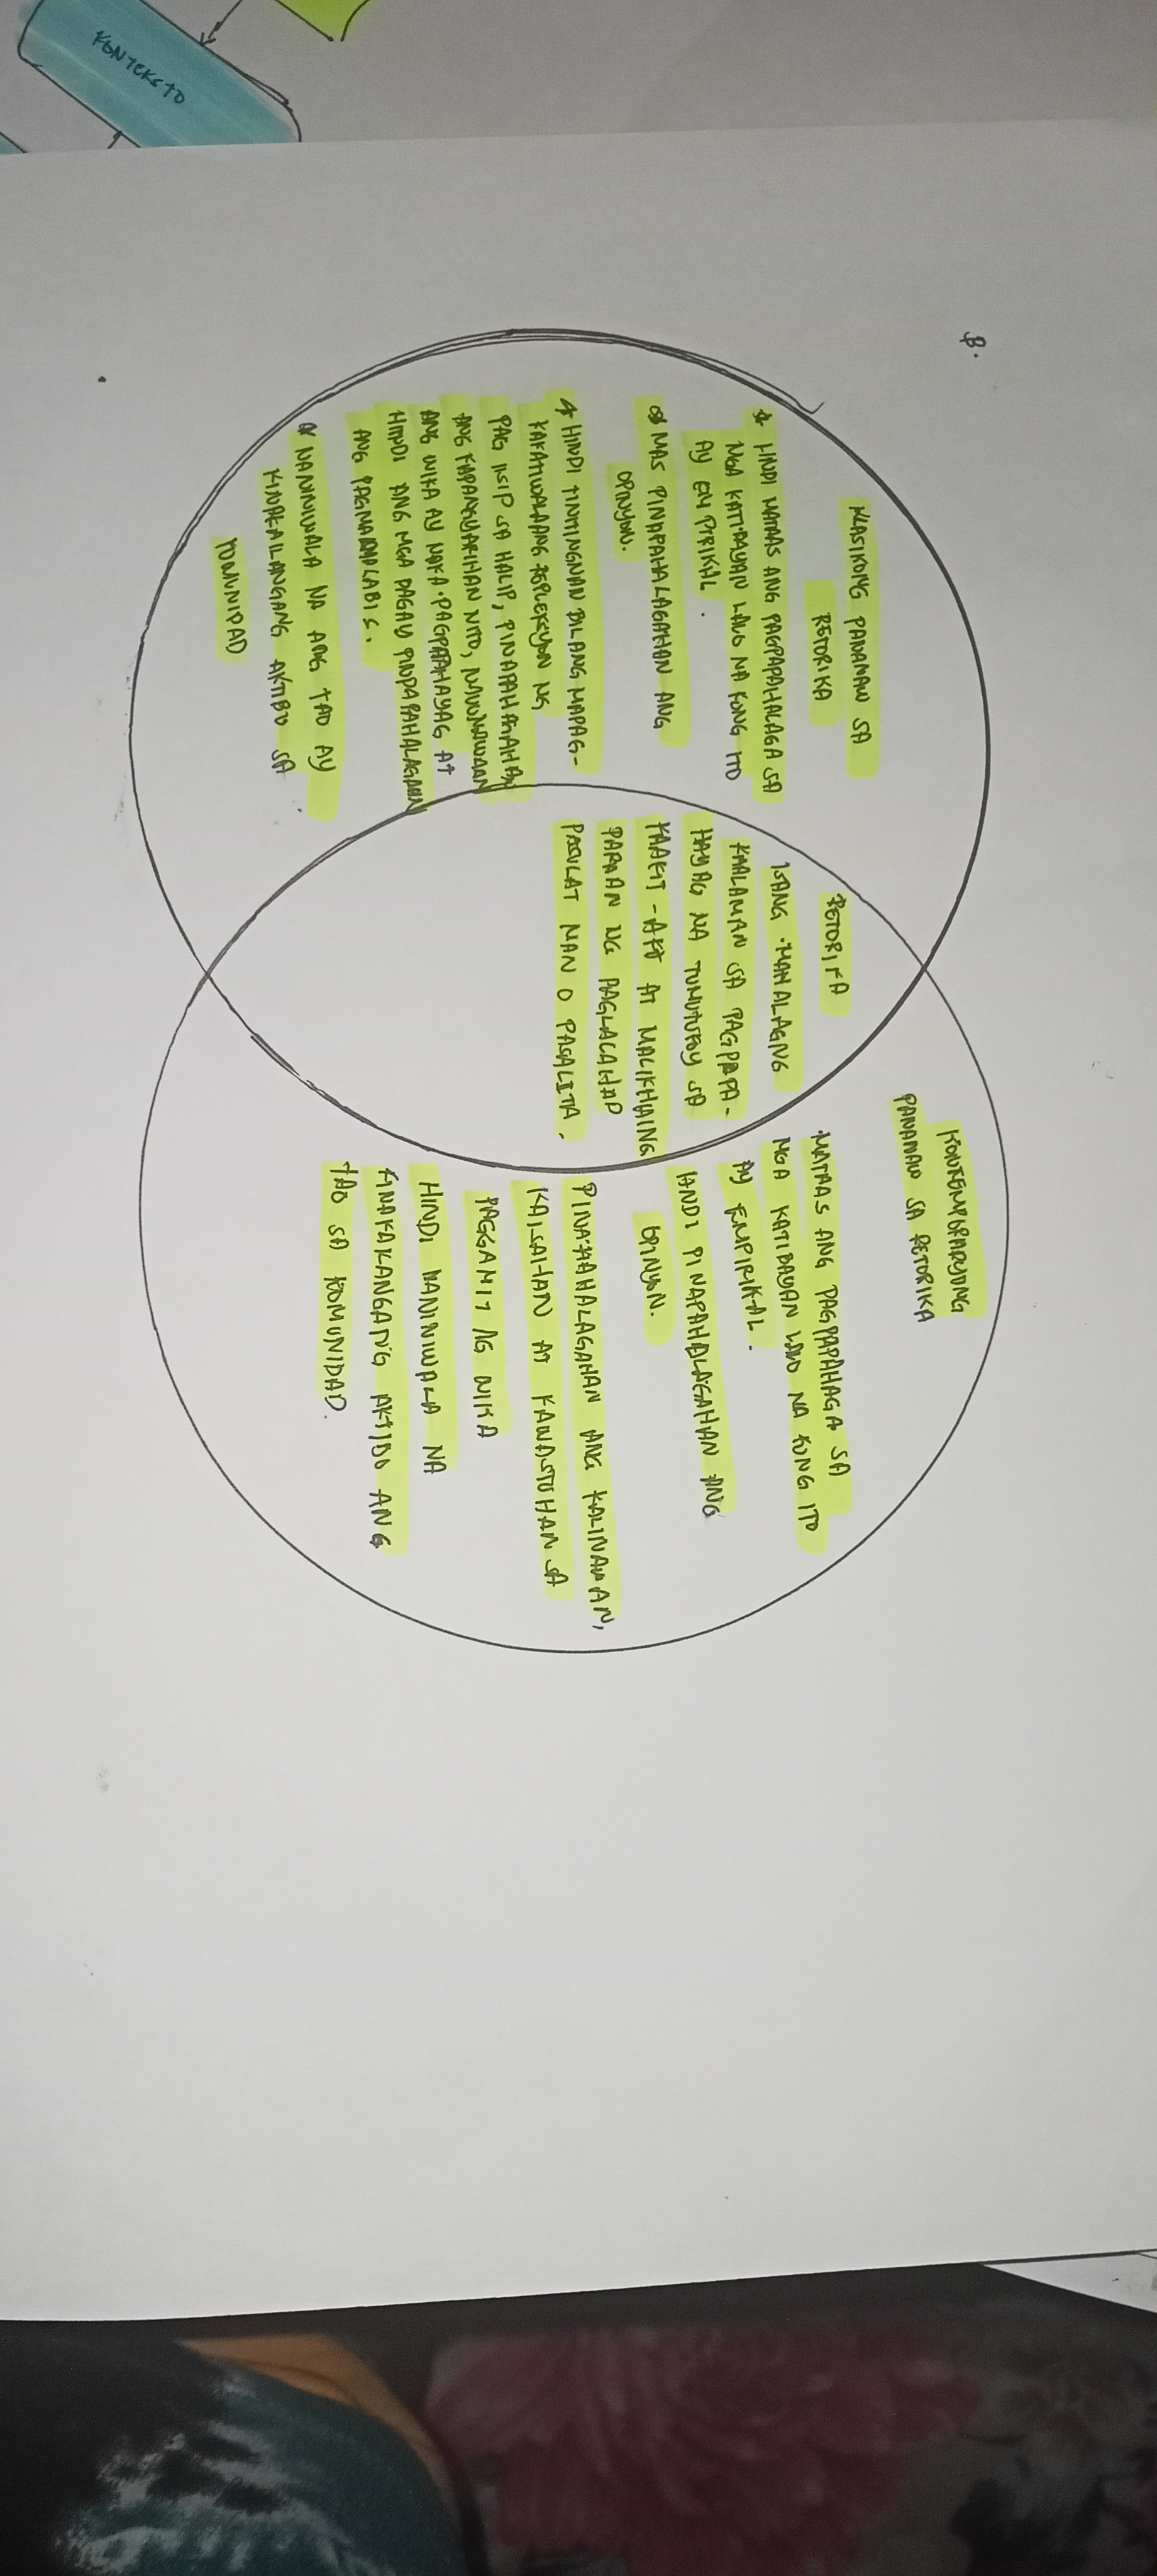 KONTEKSTO
B.
KLASIKONG PANANAW SA
RETORIKA
* HINDI MATAAS ANG PAGPAPAHALAGA SA
MGA KATIBAYAN LALO NA KUNG ITO
AY EMPIRIKAL.
* MAS PINAPAHALAGAHAN ANG
OPINYON.
* HINDI TINITINGNAN BILANG MAPAG-
KAKATIWALAANG REPLEKSYON NG
PAG IISIP SA HALIP, PINAPAHAGAHAN
ANG KAPANGYARIHAN NITO,
ANG WIKA AY NAKA-PAGPAPAHAYAG AT
HINDI ANG MGA PAGAY PINDAPAHALAGAHN
ANG
* NANINIWALA NA ANG TAO AY
KINAKAILANGANG AKTIBO SA
KOMUNIDAD
RETORIKA
ISANG MAHALAGNG
KAALAMAN SA PAGPAPA-
HAYAG NA TUMUTUKOY SA
KAAKIT-AKIT AT MALIKHAING
PARAAN NG PAGLALAHAD
PASULAT MAN O PASALITA.
KONTEMPORARYONG
PANANAW SA RETORIKA
MATAAS ANG PAGPAPAHAGA SA
MGA KATIBAYAN LALO NA KUNG ITO
AY EMPIRIKAL.
HINDI PINAPAHALAGAHAN ANG
OPINYON.
PINAPAHALAGAHAN ANG KALINAWAN,
KAISAHAN AT KAWASTUHAN SA
PAGGAMIT NG WIKA
HINDI NANINIWALA NA
KINAKAILANGANG AKTIBO ANG
TAO SA KOMUNIDAD.